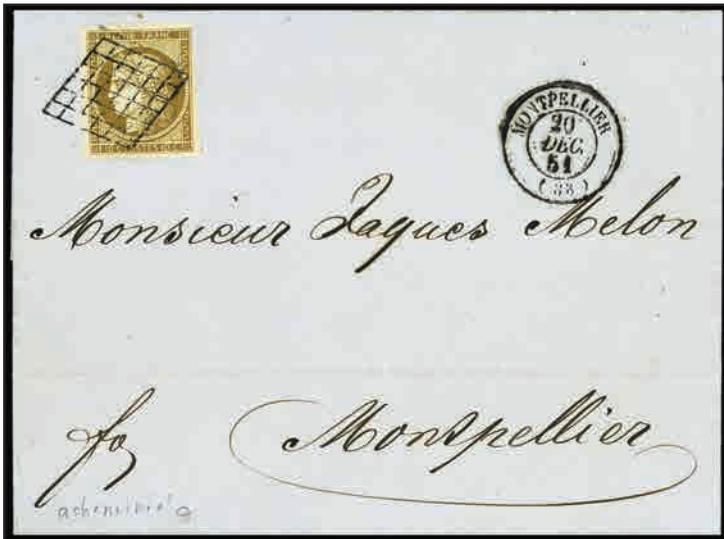 MONTPELLIER
20
DEC.
51
Monsieur Jaques Melon
fo
Montpellier